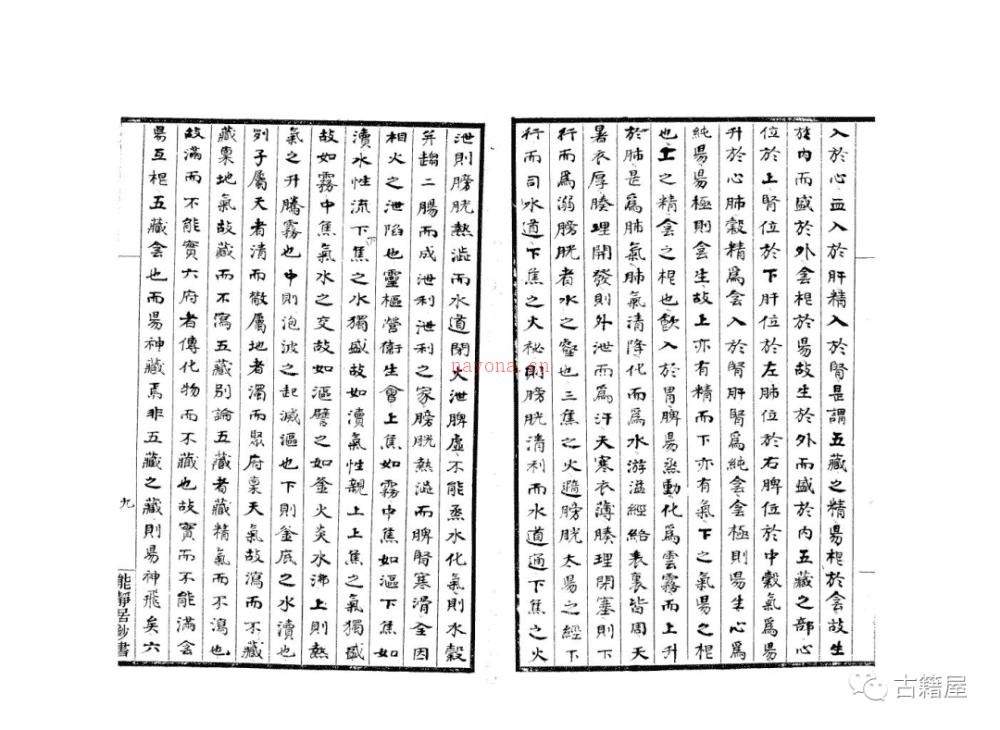 入於心血入於肝精入於腎是謂五藏之精昜根於侌故生
於内而盛於外侌根於昜故生於外而盛於内五藏之部心
位於上腎位於下肝位於左肺位於右脾位於中穀氣爲昜
升於心肺穀精爲侌入於腎肝腎爲純侌侌極則昜生心爲
純昜昜極則侌生故上亦有精而下亦有氣下之氣昜之根
也上之精侌之根也飲入於胃脾昜烝動化爲雲霧而上升
於肺是爲肺氣肺氣清降化而爲水游溢經絡表裏皆周天
暑衣厚腠理開發則外泄而爲汗天寒衣薄腠理閉塞則下
行而爲溺膀胱者水之壑也三焦之火隨膀胱太昜之經下
行而司水道下焦之火祕則膀胱清利而水道通下焦之火
泄則膀胱熱澁而水道閉火泄脾虛不能烝水化氣則水穀
并趨二腸而成泄利泄利之家膀胱熱澁而脾腎寒滑全因
相火之泄陷也靈樞營衛生會上焦如霧中焦如漚下焦如
瀆水性流下下焦之水獨盛故如瀆氣性親上上焦之氣獨盛
故如霧中焦氣水之交故如漚譬之如釜火炎水沸上則熱
氣之升騰霧也中則泡波之起滅漚也下則釜底之水瀆也
列子屬天者清而散屬地者濁而聚府稟天氣故瀉而不藏
藏稟地氣故藏而不瀉五藏别論五藏者藏精氣而不瀉也
故滿而不能實六府者傳化物而不藏也故實而不能滿侌
昜互根五藏侌也而昜神藏焉非五藏之藏則昜神飛矣六
九
能靜居鈔書
nayona.cn
古籍屋